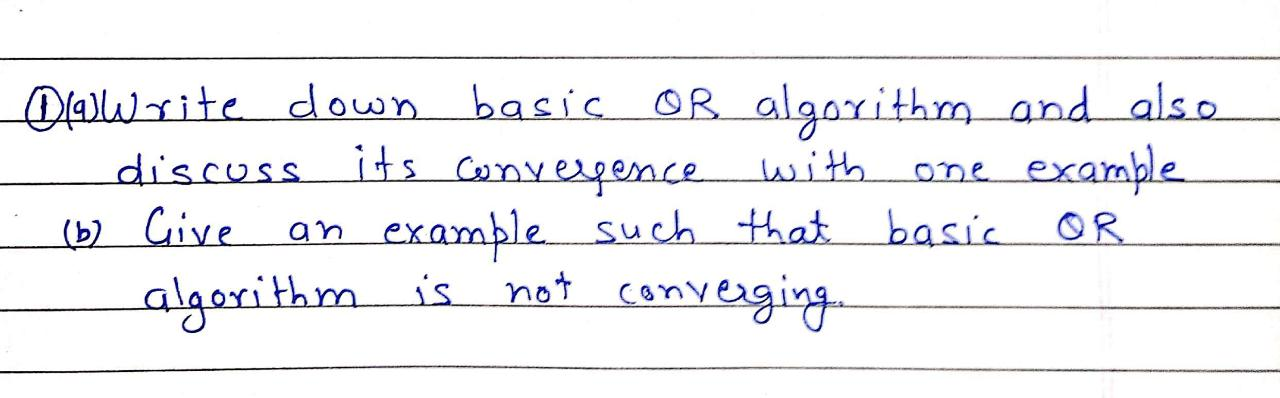 ①(a) Write down basic QR algorithm and also
discuss its convergence with one example
(b) Give an example such that basic QR
algorithm is not converging.